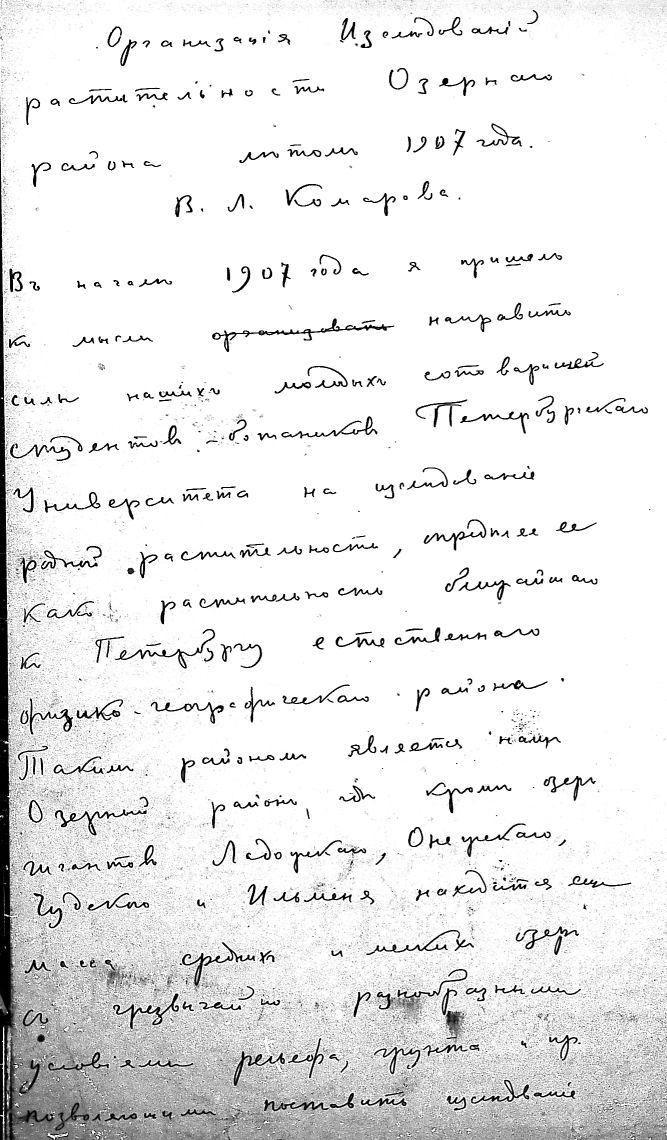 Организація Изслѣдованій
растительности Озернаго
района лѣтомъ 1907 года.
В. Л. Комарова.
Въ началѣ 1907 года я пришелъ
къ мысли организовать направить
силы нашихъ молодыхъ сотоварищей
студентовъ-ботаниковъ Петербургскаго
Университета на изслѣдованіе
родной растительности, опредѣляя ее
какъ растительность ближайшаго
къ Петербургу естественнаго
физико-географическаго района.
Такимъ райономъ является нашъ
Озерный районъ, гдѣ кромѣ озеръ
гигантовъ Ладожскаго, Онежскаго,
Чудского и Ильменя находится еще
масса среднихъ и мелкихъ озеръ
съ чрезвычайно разнообразными
условіями рельефа, грунта и пр
позволяющими поставить изслѣдованіе